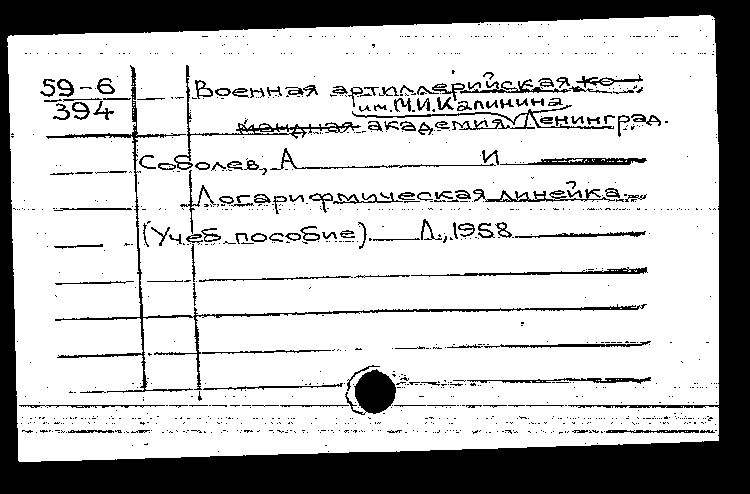 59-6
394
Военная артиллерийская ко-
им. М.И. Калинина
мандная академия. Ленинград.
Соболев, А И
Логарифмическая линейка.
(Учеб. пособие). Л., 1958